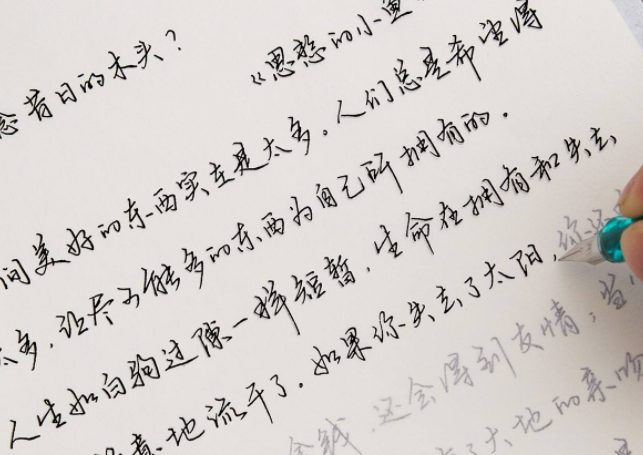 念昔日的木头?
《思想的小
间美好的东西实在是太多。人们总是希望得
太多,让尽可能多的东西为自己所拥有的。
人生如白驹过隙一样短暂,生命在拥有和失去
意地流干了。如果你失去了太阳,你还
金钱,还会得到友情;当
了大地的亲吻